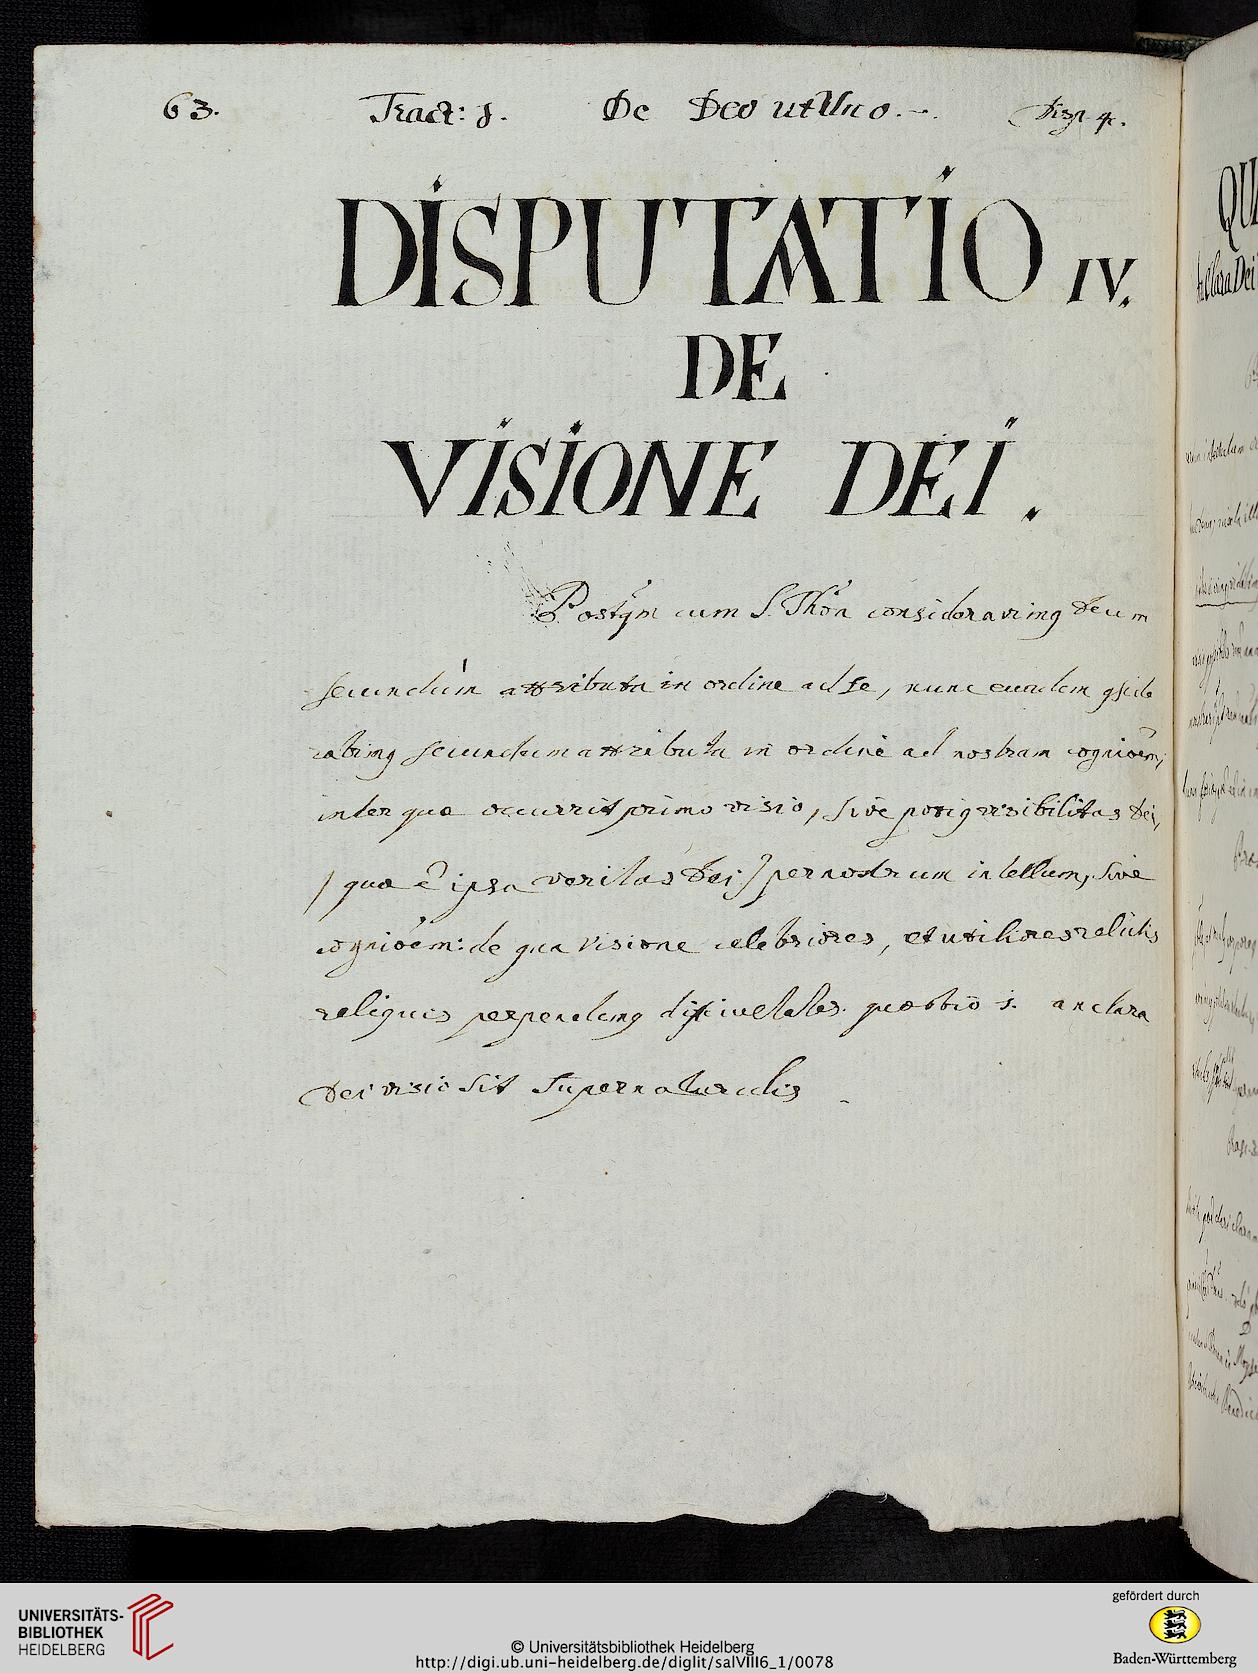 63. Tract: 1. De Deo ut Uno. -. Disp. 4.
DISPUTATIO IV.
DE
VISIONE DEI.
Postqm cum S. Thõa consideravimq Deum
secundum attributa in ordine ad se, nunc eundem qside
rabimq secundum attributa in ordine ad nostram cognioẽm,
inter quæ occurrit primo visio, sive potiq visibilitas Dei,
/ quæ ẽ ipsa veritas Dei / per nostrum intellum, sive
cognioẽm: de qua visione celebriores, et utiliores relictis
reliquis perpendemq difficultates. quæstio 1. an clara
Dei visio sit supernaturalis
QUÆ
clara Dei
UNIVERSITÄTS-
BIBLIOTHEK
HEIDELBERG
© Universitätsbibliothek Heidelberg
http://digi.ub.uni-heidelberg.de/diglit/salVIII6_1/0078
gefördert durch
Baden-Württemberg